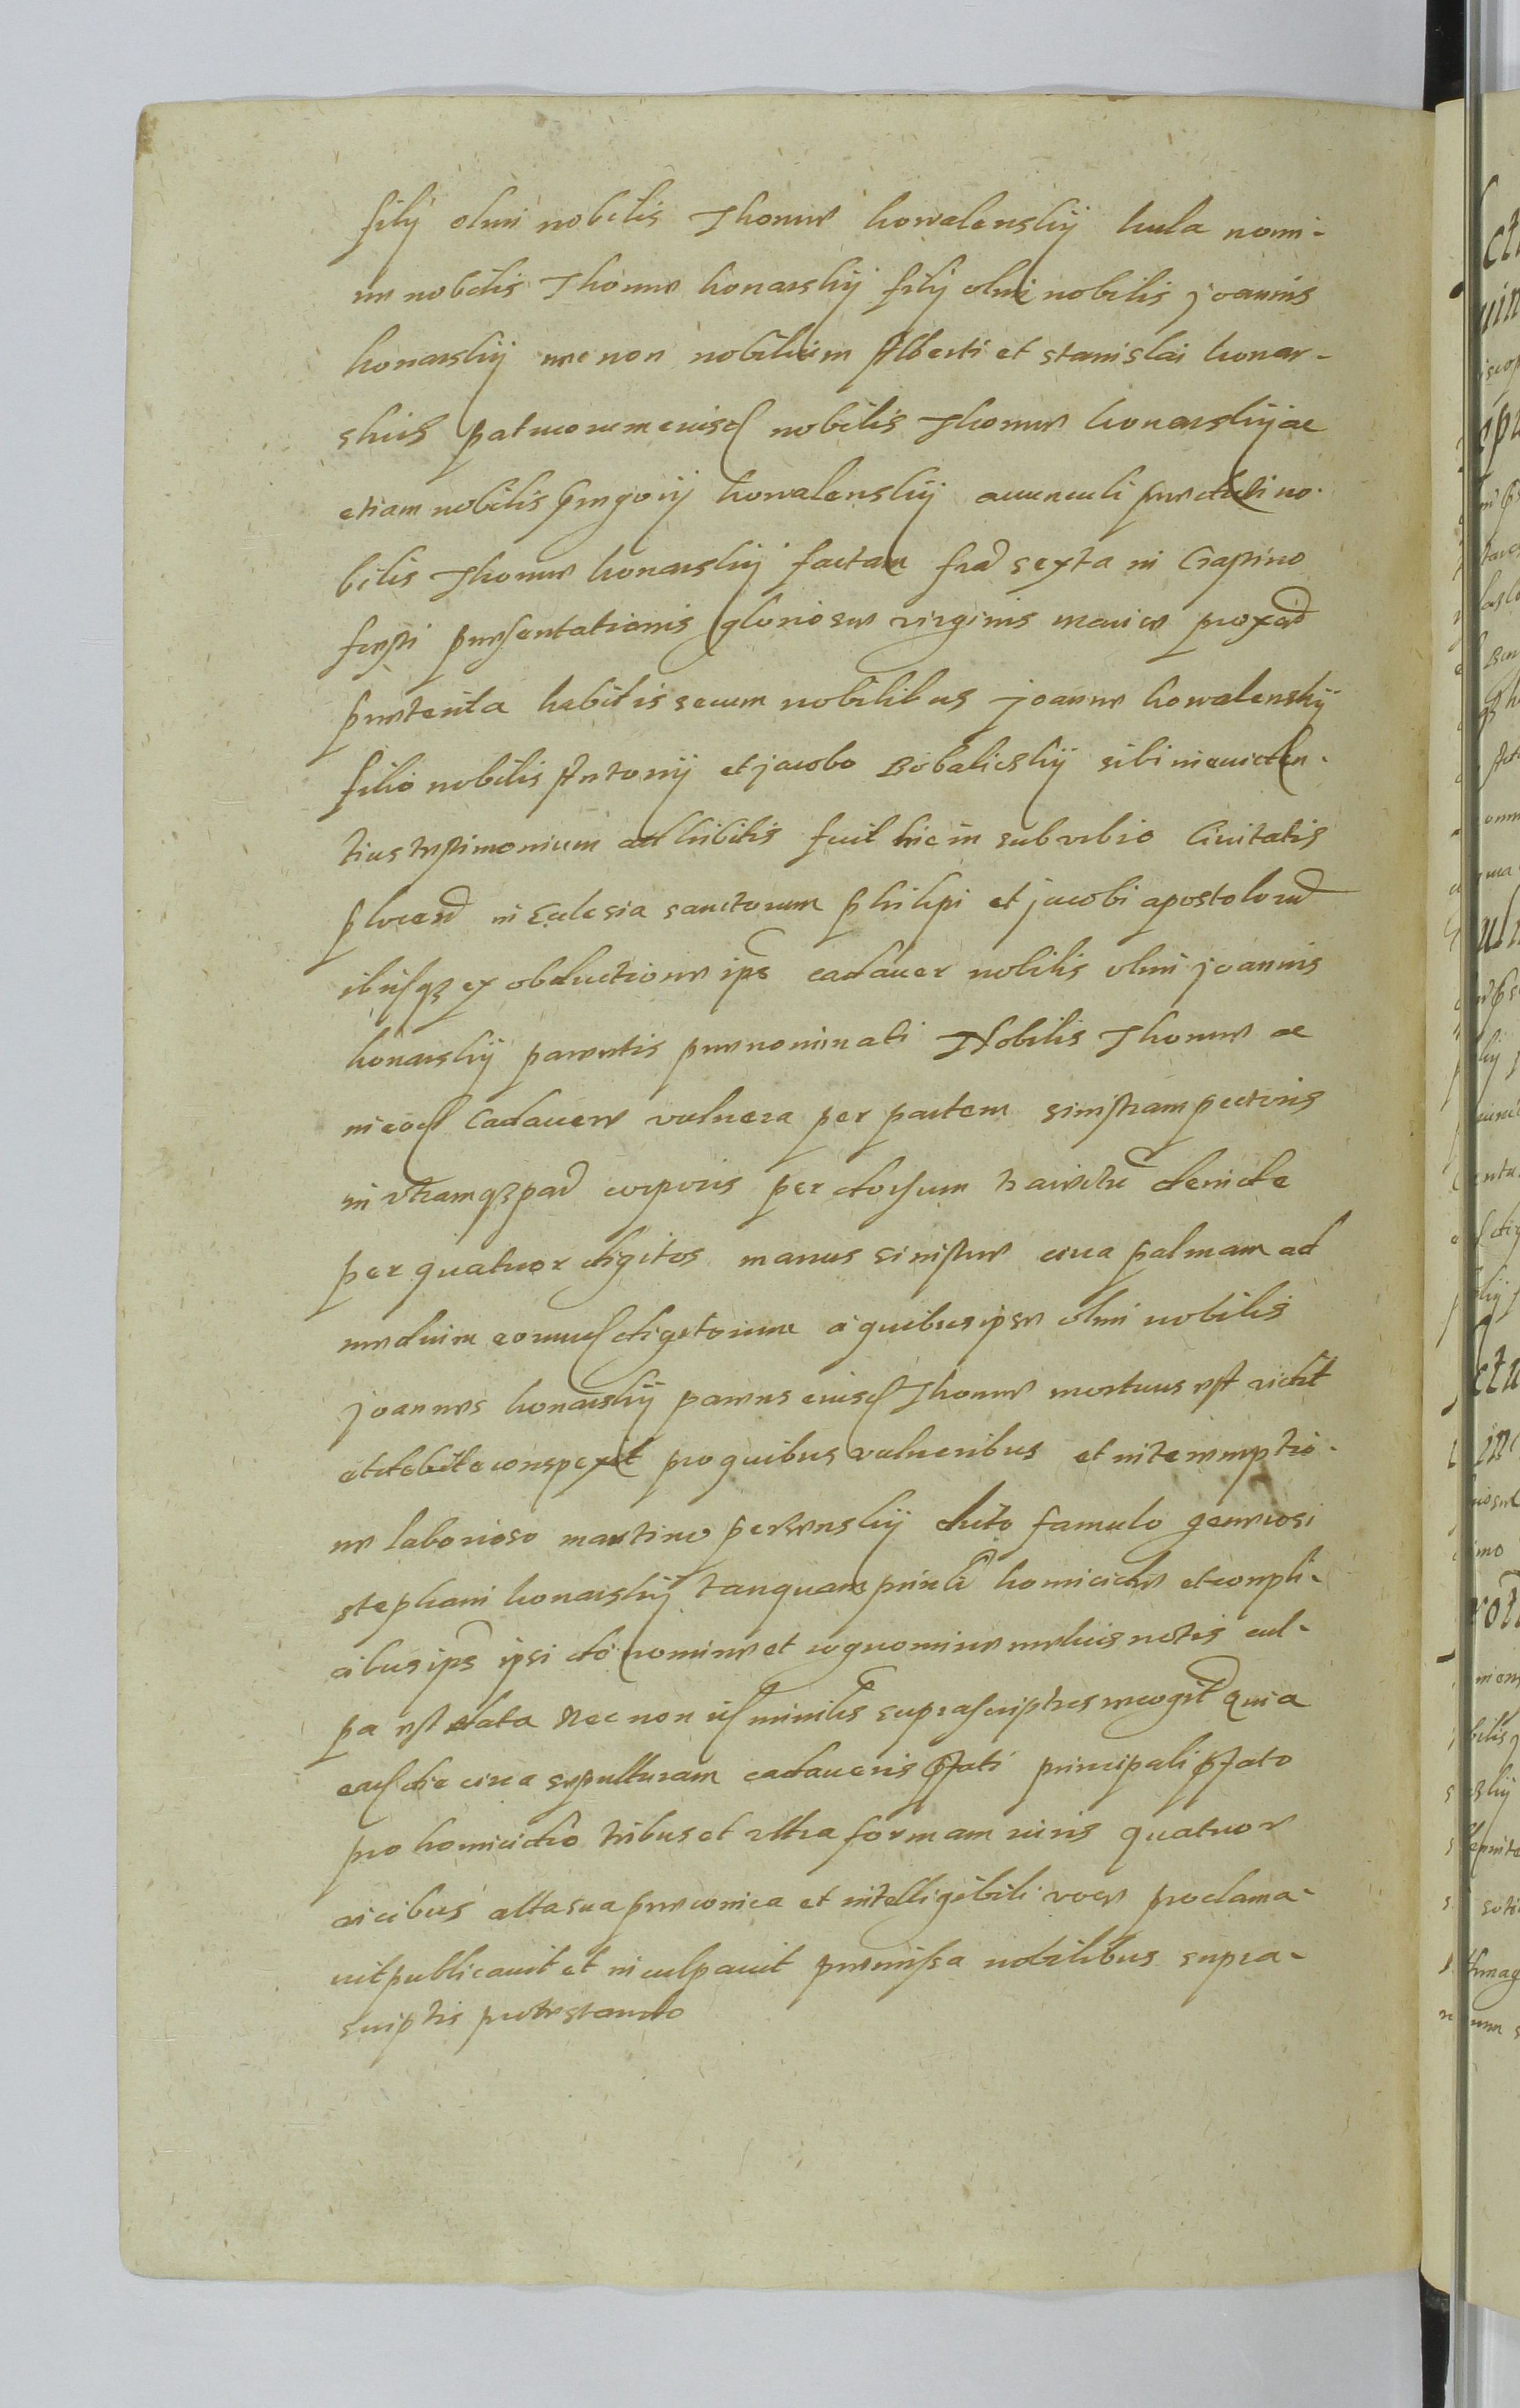 filij olim nobilis Thomae kowalenskij kula nomi-
ne nobilis Thomae konarskij filij olim nobilis joannis
konarskij nec non nobilium Alberti et stanislai konar-
skiis patruorum eiusd nobilis Thomae konarskij ac
etiam nobilis Gregorij kowalenskij auunculi praedicti no-
bilis Thomae konarskij factam fra sexta in Crastino
festi praesentationis gloriosae virginis mariae prox
praeterita habitis secum nobilibus joanne kowalenskij
filio nobilis Antonij et jacobo Bobalicskij sibi in euiden-
tius testimonium adhibitis fuit hic in suburbio Ciuitatis
plocen in Eclesia sanctorum philipi et jacobi apostolorū
ibiq3 ex obductione ips cadauer nobilis olim joannis
konarskij parentis praenominati Nobilis Thomae ac
in eod Cadauere vulnera per partem sinistram pectoris
in vtramq3 par corporis per dorsum deinde
per quatuor digitos manus sinistrae circa palmam ad
medium eorund digitorum a quibus ipse olim nobilis
joannes konarskij parens eiusd Thomae mortuus est vidit
et debite conspexit pro quibus vulneribus et interemptio-
ne laborioso martino dicto famulo generosi
stephani konarskij tanquam prin̄li homicidae et compli-
cibus ips ipsi de nomine et cognomine melius notis cul-
pa est data Nec non id minilis suprascriptus recogt quia
ead die circa sepulturam cadaueris pfati principali pfato
pro homicidio tribus et vltra formam iuris quatuor
vicibus alta sua praeconica et intelligibili voce proclama-
uit publicauit et inculpauit praemissa nobilibus supra-
scriptis protestando